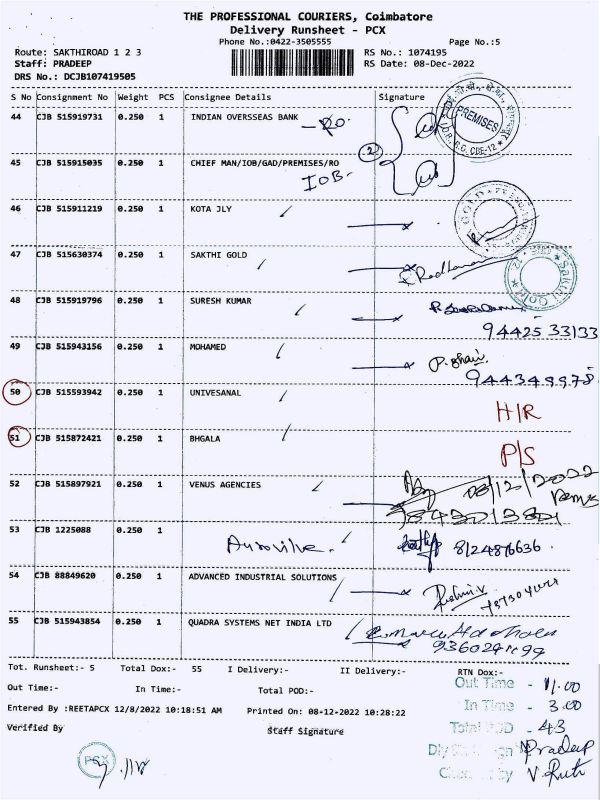 THE PROFESSIONAL COURIERS, Coimbatore
Delivery Runsheet - PCX
Phone No.:0422-3505555 Page No.:5
Route: SAKTHIROAD 1 2 3 RS No.: 1074195
Staff: PRADEEP RS Date: 08-Dec-2022
DRS No.: DCJB107419505
S No Consignment No Weight PCS Consignee Details Signature
44 CJB 515919731 0.250 1 INDIAN OVERSEAS BANK - RO.
PREMISES
2
45 CJB 515915035 0.250 1 CHIEF MAN/IOB/GAD/PREMISES/RO
IOB.
46 CJB 515911219 0.250 1 KOTA JLY
47 CJB 515630374 0.250 1 SAKTHI GOLD
Sakthi Gold
48 CJB 515919796 0.250 1 SURESH KUMAR
94425 33133
49 CJB 515943156 0.250 1 MOHAMED
50 CJB 515593942 0.250 1 UNIVESANAL
H/R
51 CJB 515872421 0.250 1 BHGALA
P/S
52 CJB 515897921 0.250 1 VENUS AGENCIES 08/12/2022
53 CJB 1225088 0.250 1
Auroville. 8124876636.
54 CJB 88849620 0.250 1 ADVANCED INDUSTRIAL SOLUTIONS
55 CJB 515943854 0.250 1 QUADRA SYSTEMS NET INDIA LTD
Tot. Runsheet:- 5 Total Dox:- 55 I Delivery:- II Delivery:- RTN Dox:-
Out Time:- In Time:- Total POD:-
Out Time - 11.00
In Time - 3.00
Entered By :REETAPCX 12/8/2022 10:18:51 AM Printed On: 08-12-2022 10:28:22
Total POD - 43
Verified By Staff Signature
Pradeep
PCX